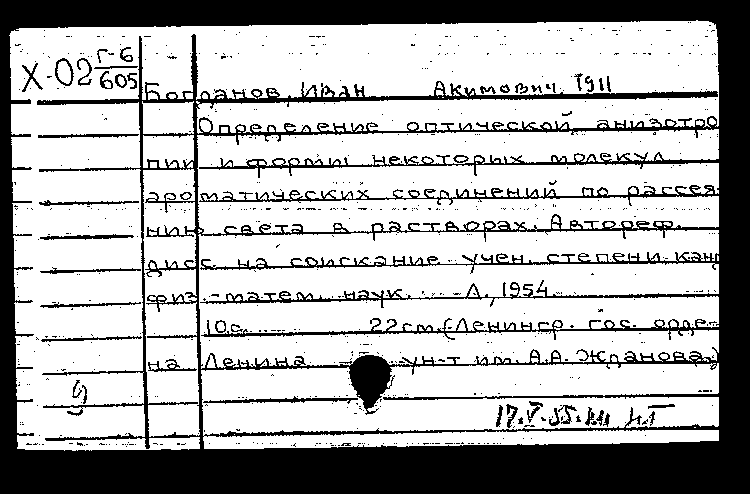 Х-02 Г-6
605
Богданов, Иван Акимович, 1911
Определение оптической анизотро
пии и формы некоторых молекул
ароматических соединений по рассея-
нию света в растворах. Автореф.
дисс. на соискание учен. степени канд
физ.-матем. наук. Л., 1954
10 с. 22 см. (Ленингр. гос. орде-
на Ленина ун-т им. А.А. Жданова)
17.V.55